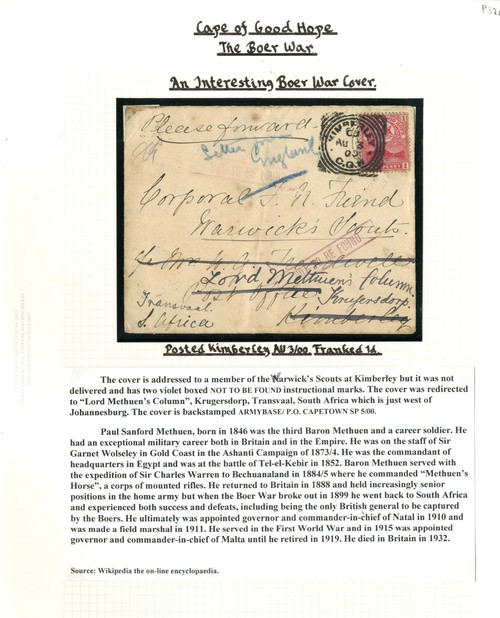 P32
Cape of Good Hope
The Boer War
An Interesting Boer War Cover.
Please forward
Letter from
England
KIMBERLEY
AU 3
C.G.H
Corporal F. N. Friend
Warwick's Scouts.
NOT TO BE FOUND
Lord Methuen's Column
Post Office Krugersdorp
Transvaal
S. Africa
Kimberley
Posted Kimberley AU 3/00. Franked 1d.
The cover is addressed to a member of the Warwick's Scouts at Kimberley but it was not
delivered and has two violet boxed NOT TO BE FOUND instructional marks. The cover was redirected
to "Lord Methuen's Column", Krugersdorp, Transvaal, South Africa which is just west of
Johannesburg. The cover is backstamped ARMYBASE/ P.O. CAPETOWN SP 5/00.
Paul Sanford Methuen, born in 1846 was the third Baron Methuen and a career soldier. He
had an exceptional military career both in Britain and in the Empire. He was on the staff of Sir
Garnet Wolseley in Gold Coast in the Ashanti Campaign of 1873/4. He was the commandant of
headquarters in Egypt and was at the battle of Tel-el-Kebir in 1852. Baron Methuen served with
the expedition of Sir Charles Warren to Bechuanaland in 1884/5 where he commanded "Methuen's
Horse", a corps of mounted rifles. He returned to Britain in 1888 and held increasingly senior
positions in the home army but when the Boer War broke out in 1899 he went back to South Africa
and experienced both success and defeats, including being the only British general to be captured
by the Boers. He ultimately was appointed governor and commander-in-chief of Natal in 1910 and
was made a field marshal in 1911. He served in the First World War and in 1915 was appointed
governor and commander-in-chief of Malta until he retired in 1919. He died in Britain in 1932.
Source: Wikipedia the on-line encyclopaedia.